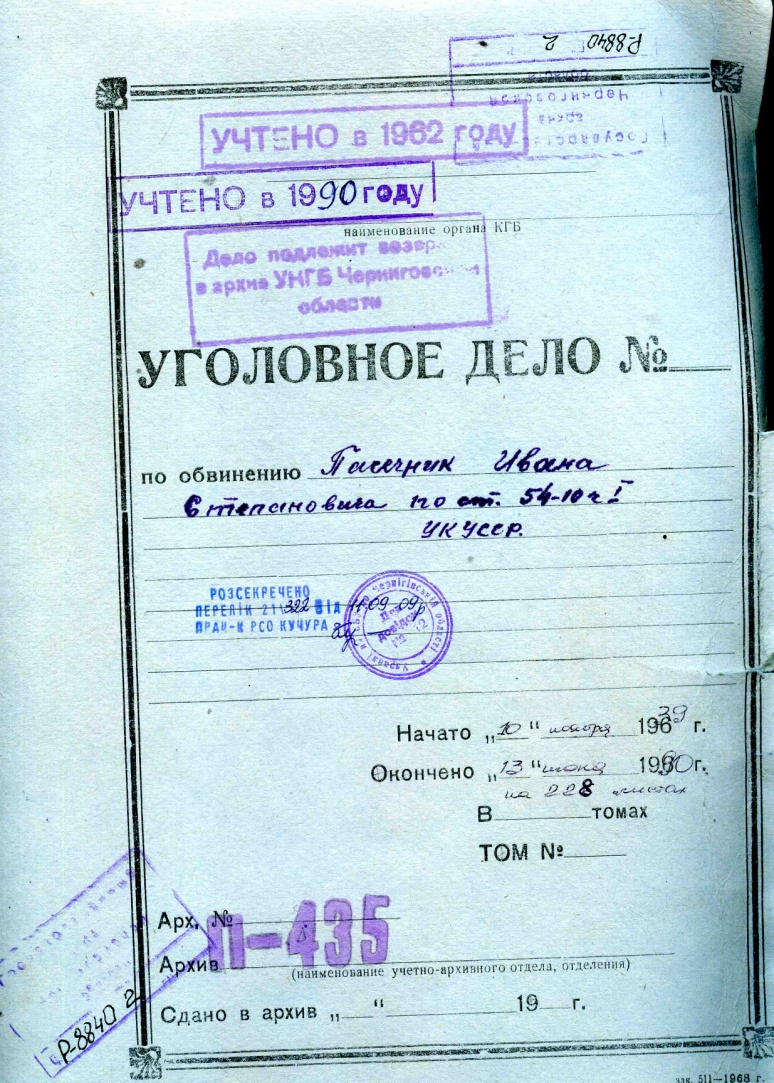 Р-8840 2
Государств
архив
Черниговской
области
УЧТЕНО в 1962 году
УЧТЕНО в 1990 году
наименование органа КГБ
Дело подлежит
в архив УКГБ Черниговской
области
УГОЛОВНОЕ ДЕЛО №
по обвинению Пасечник Ивана
Степановича по ст. 54-10 ч I
УК УССР.
РОЗСЕКРЕЧЕНО
ПЕРЕЛІК 211/322 ВІД 11.09.09р
ПРАЦ-К РСО КУЧУРА
Для
довідок
№ 12
Начато „10“ ноября 1939 г.
Окончено „13“ июня 1940г.
на 228 листах
В томах
ТОМ №
Арх. №
П-435
Архив
(наименование учетно-архивного отдела, отделения)
Сдано в архив „ “ 19 г.
Р-8840 2
зак. 511—1968 г.